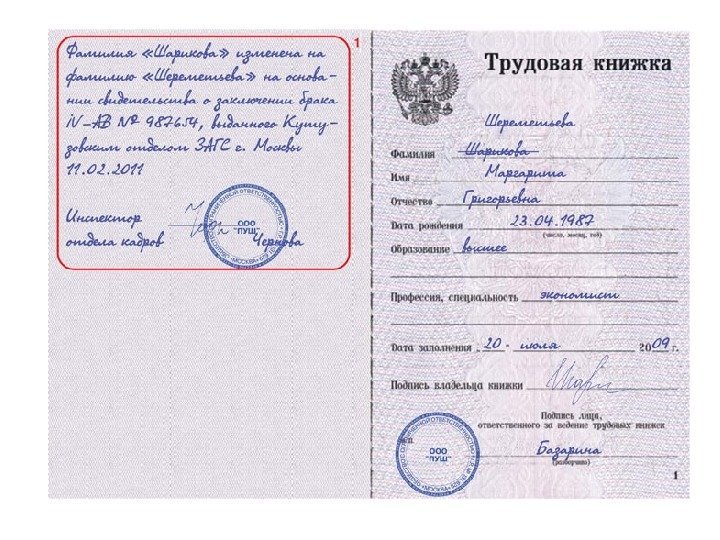 Фамилия «Шарикова» изменена на
фамилию «Шереметьева» на основа-
нии свидетельства о заключении брака
IV-АВ № 987654, выданного Кутузовским отделом ЗАГС г. Москвы
11.02.2011
Инспектор
отдела кадров Чернова
ООО
"ПУЩ"
1
Трудовая книжка
Шереметьева
Фамилия Шарикова
Имя Маргарита
Отчество Григорьевна
Дата рождения 23.04.1987
(число, месяц, год)
Образование высшее
Профессия, специальность экономист
Дата заполнения 20 - июля 2009 г.
Подпись владельца книжки
Подпись лица,
ответственного за ведение трудовых книжек
М.П.
Базарича
(разборчиво)
ООО
"ПУЩ"
1